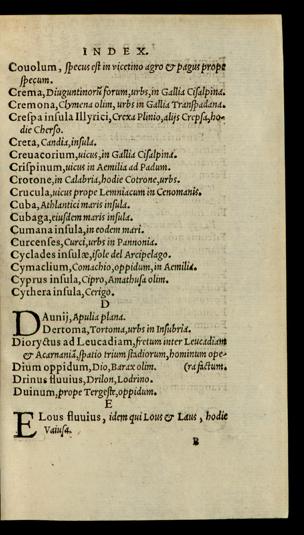 INDEX.
Couolum, ſpecus eſt in vicetino agro & pagus prope
ſpecum.
Crema, Diuguntinorū forum, urbs, in Gallia Ciſalpina.
Cremona, Clymena olim, urbs in Gallia Tranſpadana.
Creſpa inſula Illyrici, Crexa Plinio, alijs Crepſa, ho-
die Cherſo.
Creta, Candia, inſula.
Creuacorium, uicus, in Gallia Ciſalpina.
Criſpinum, uicus in Aemilia ad Padum.
Crotone, in Calabria, hodie Cotrone, urbs.
Crucula, uicus prope Lemniacum in Cenomanis.
Cuba, Athlantici maris inſula.
Cubaga, eiuſdem maris inſula.
Cumana inſula, in eodem mari.
Curcenſes, Curci, urbs in Pannonia.
Cyclades inſulæ, iſole del Arcipelago.
Cymaclium, Comachio, oppidum, in Aemilia.
Cyprus inſula, Cipro, Amathuſa olim.
Cythera inſula, Cerigo.
D
DAunij, Apulia plana.
Dertoma, Tortoma, urbs in Inſubria.
Dioryctus ad Leucadiam, fretum inter Leucadiam
& Acarnaniā, ſpatio trium ſtadiorum, hominum ope-
Dium oppidum, Dio, Barax olim. (ra factum.
Drinus fluuius, Drilon, Lodrino.
Duinum, prope Tergeſte, oppidum.
E
ELous fluuius, idem qui Lous & Laus, hodie
Vaiuſa.
B